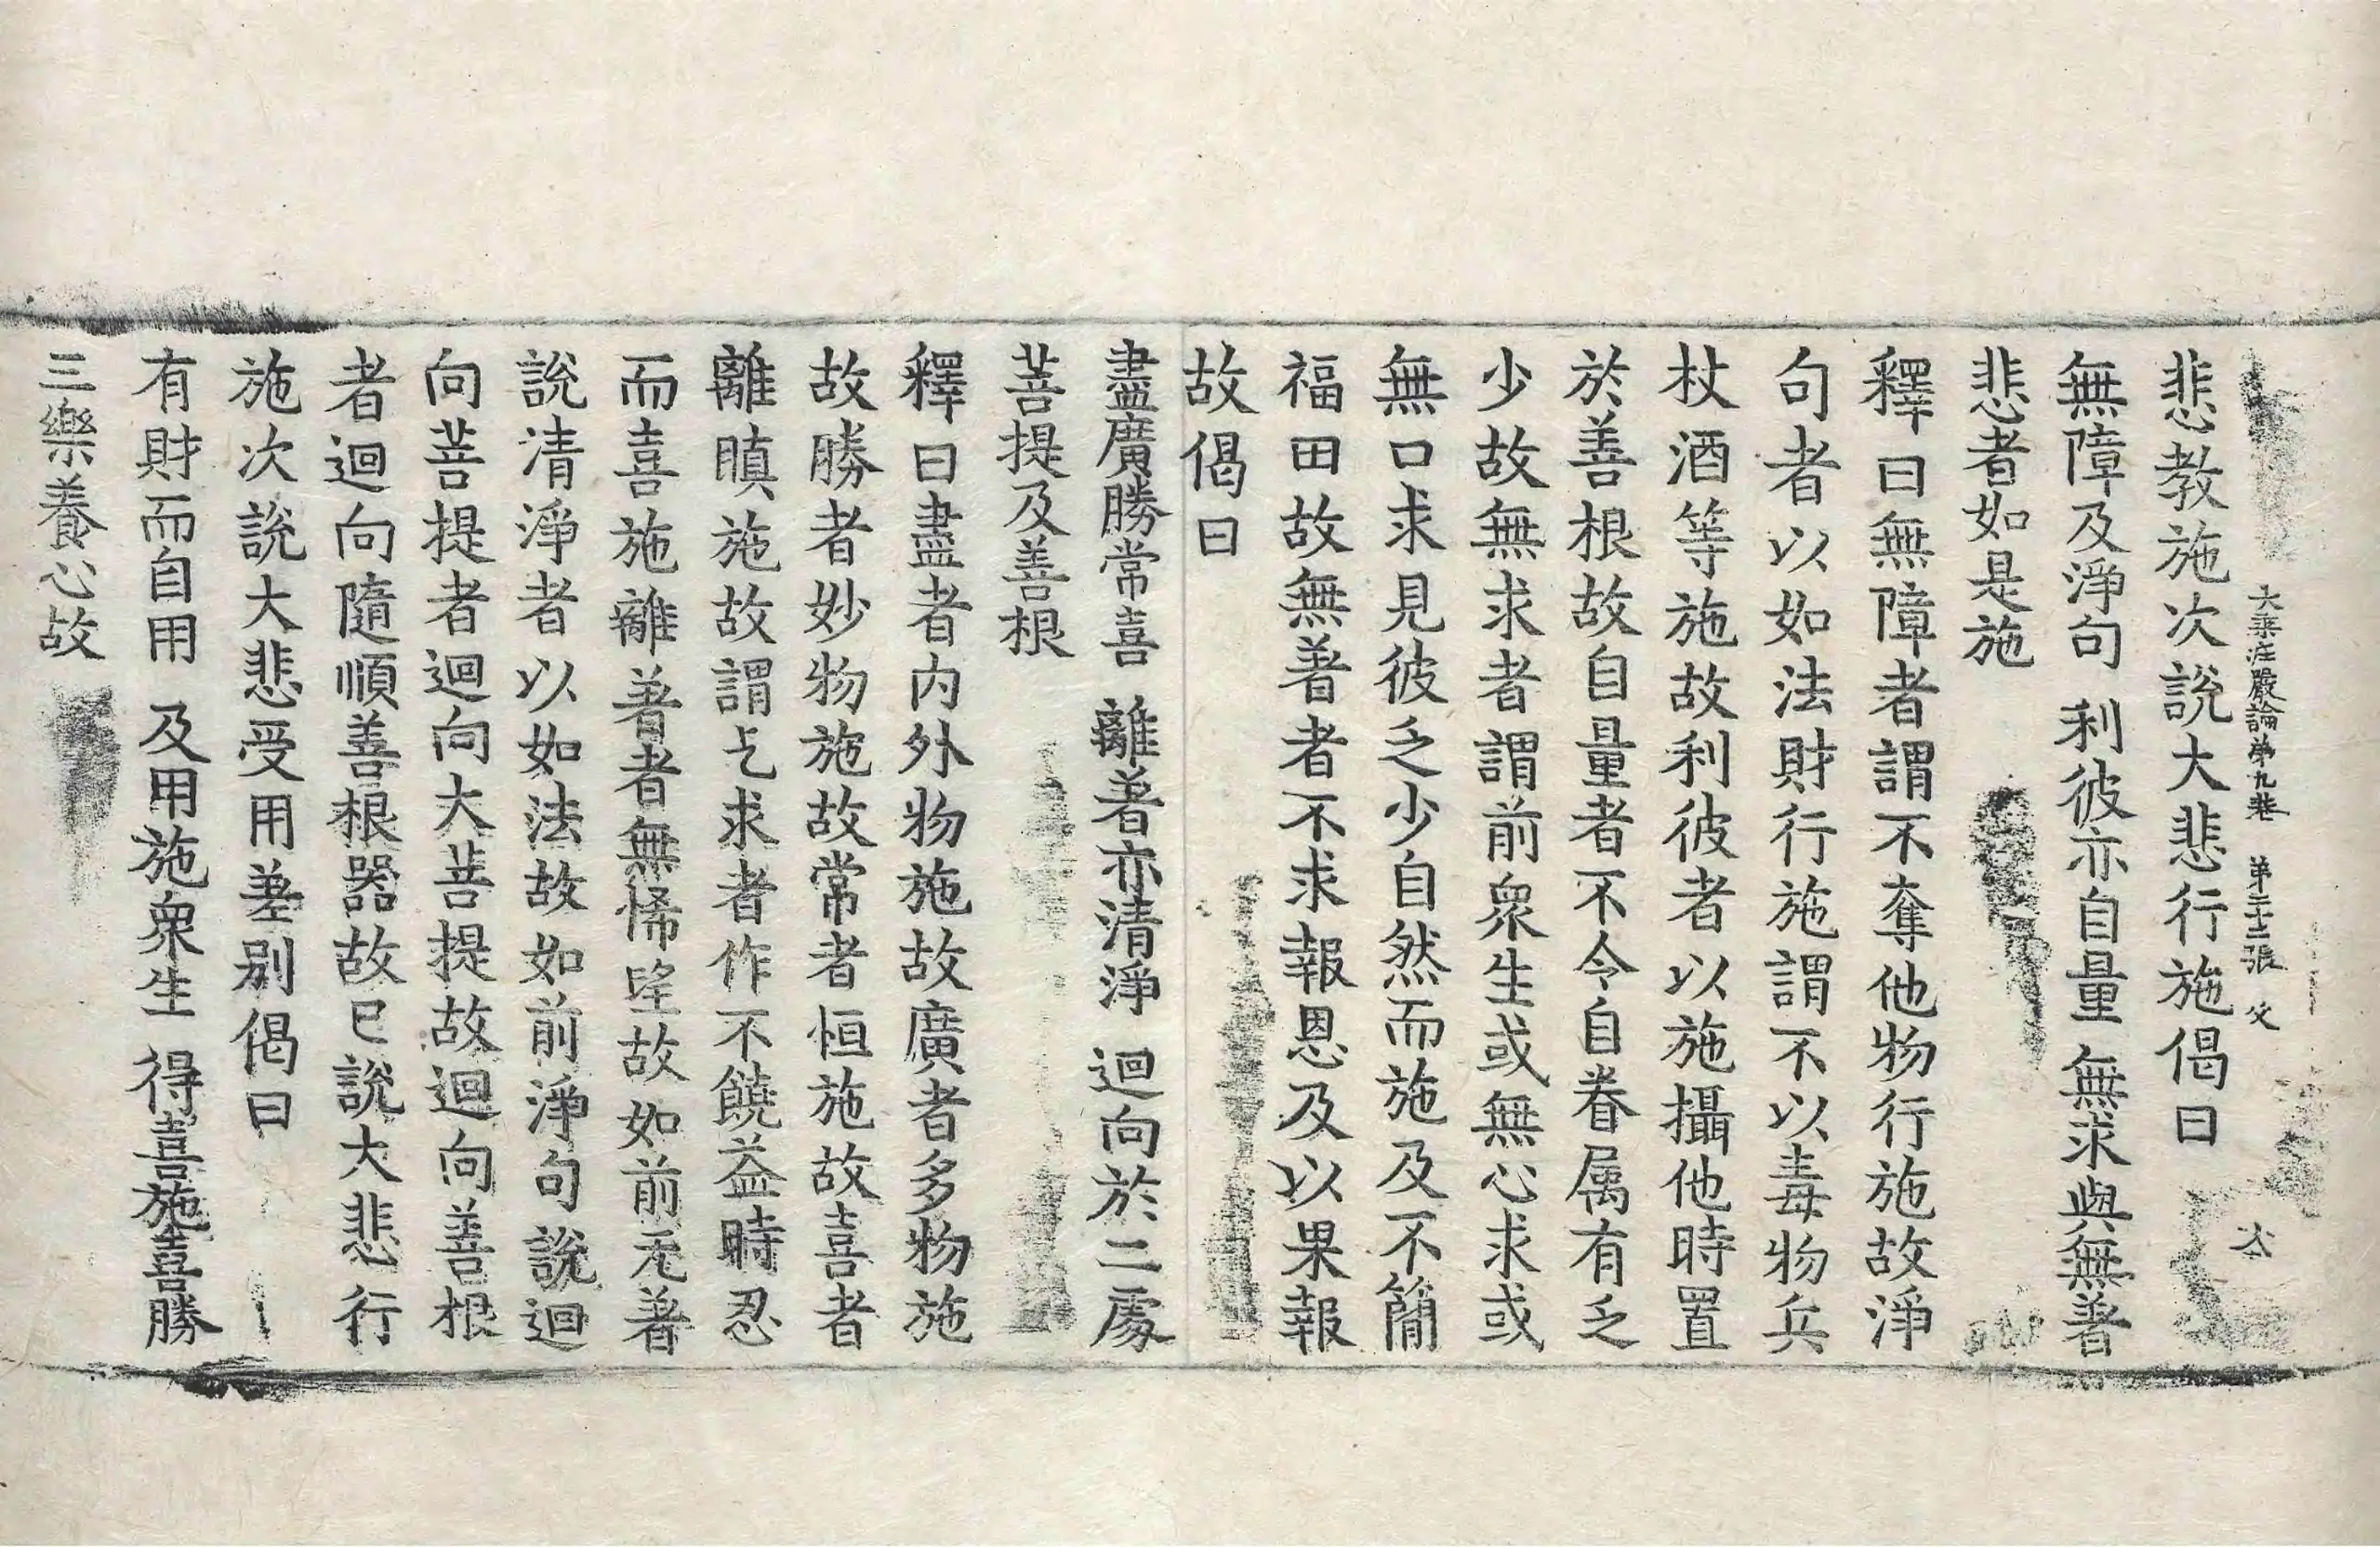 大乗庄嚴論第九卷　第二十二張　父
悲教施次說大悲行施偈曰
無障及淨句　利彼亦自量　無求與無著
悲者如是施
釋曰無障者謂不奪他物行施故淨
句者以如法財行施謂不以毒物兵
杖酒等施故利彼者以施攝他時置
於善根故自量者不令自眷属有乏
少故無求者謂前衆生或無心求或
無口求見彼乏少自然而施及不簡
福田故無著者不求報恩及以果報
故偈曰
盡廣勝常喜　離著亦清淨　迴向於二處
菩提及善根
釋曰盡者内外物施故廣者多物施
故勝者妙物施故常者恒施故喜者
離瞋施故謂乞求者作不饒益時忍
而喜施離著者無悕望故如前无著
說清淨者以如法故如前淨句說迴
向菩提者迴向大菩提故迴向善根
者迴向隨順善根器故已說大悲行
施次說大悲受用差别偈曰
有財而自用　及用施衆生　得喜施喜勝
三樂養心故